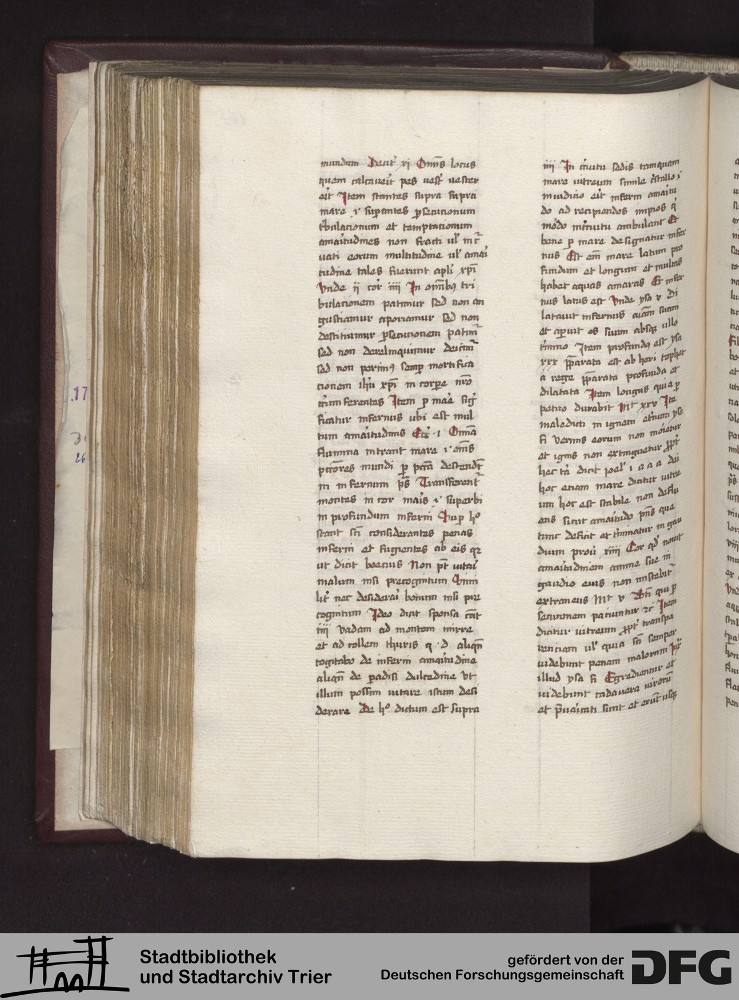 mundum Deut' xi Om̄s locus
quem calcaverit pes vest' vester
erit Item stantes supra supra
mare i· fugientes ꝑsecutionum
t'bulationum et temptationum
amaritudines non fracti vl'
vati eorum multitudine vl' amari
tudine tales fuerunt apl'i xp̄i
Vnde ii cor' iiii In om̄ibꝫ tri
bulationem patimur sed non an
gustiamur aporiamur sed non
destituimur ꝑsecutionem patim'
sed non derelinquimur deicim'
sed non perim9 semꝑ mortifica
tionem ih'u xp̄i in corꝑe nr̄o
circumferentes Item ꝑ mare sig'
ficatur infernus ubi est mul
tum amaritudinis Ecc' i Omnia
flumina intrant mare i· om̄s
pctōres mundi ꝑ pctā descendūt
in infernum ps̄ Transferent'
montes in cor maris i· superbi
in profundum inferni Sup h°
stant sc̄i considerantes penas
inferni et fugientes ab eis qꝫ
ut dicit boecius Non pt' vitari
malum nisi precognitum Simi
lit' nec desiderari bonum nisi pre
cognitum Ideo dicit sponsa cāt
iiii Vadam ad montem mirre
et ad collem thuris q· d· aliqn̄
cogitabo de inferni amaritudine
aliqn̄ de paradisi dulcedine Vt
illum possim vitare istum desi
derare De h° dictum est supra
iiii In circuitu sedis tamquam
mare vitreum simile c'stallo i·
inundatio est inferni amaritu
do ad recipiendos impios q'
modo in circuitu ambulant Et
bene ꝑ mare designatur infer
nus Est em̄ mare latum pro
fundum et longum et multas
habet aquas amaras Et infer
nus latus est Vnde ysa v Di
latavit infernus aīam suam
et aperuit os suum absqꝫ ullo
termino Item profundꝰ est ysa
xxx ꝑparata est ab heri tophet
a rege ꝑparata profunda et
dilatata Item longus quia ꝑ
petuo durabit Mt' xxv Ite
maledicti in ignem eternum ysa
fi Vermis eorum non morietur
et ignis non extinguetur ꝓpt'
hec tā dicit joel' i a a a diei
hoc etiam mare dicitur vitre
um hoc est stabile non deflu
ens sicut amaritudo pn̄s que
tunc deficit et terminatur in gau
dium prov' xiiii Cor qd' novit
amaritudinem anime sue in
gaudio eius non miscebit'
extraneus Mt' v Bt'i qui ꝑ
secutionem patiuntur ꝛc Item
dicitur vitreum ꝓpt' transpa
rentiam vl' quia sc̄i semper
videbunt penam malorum
illud ysa fi Egredientur et
videbunt cadavera virorū
et p̄varicati sunt et erūt usqꝫ
.17
26
Stadtbibliothek
und Stadtarchiv Trier
gefördert von der
Deutschen Forschungsgemeinschaft
DFG